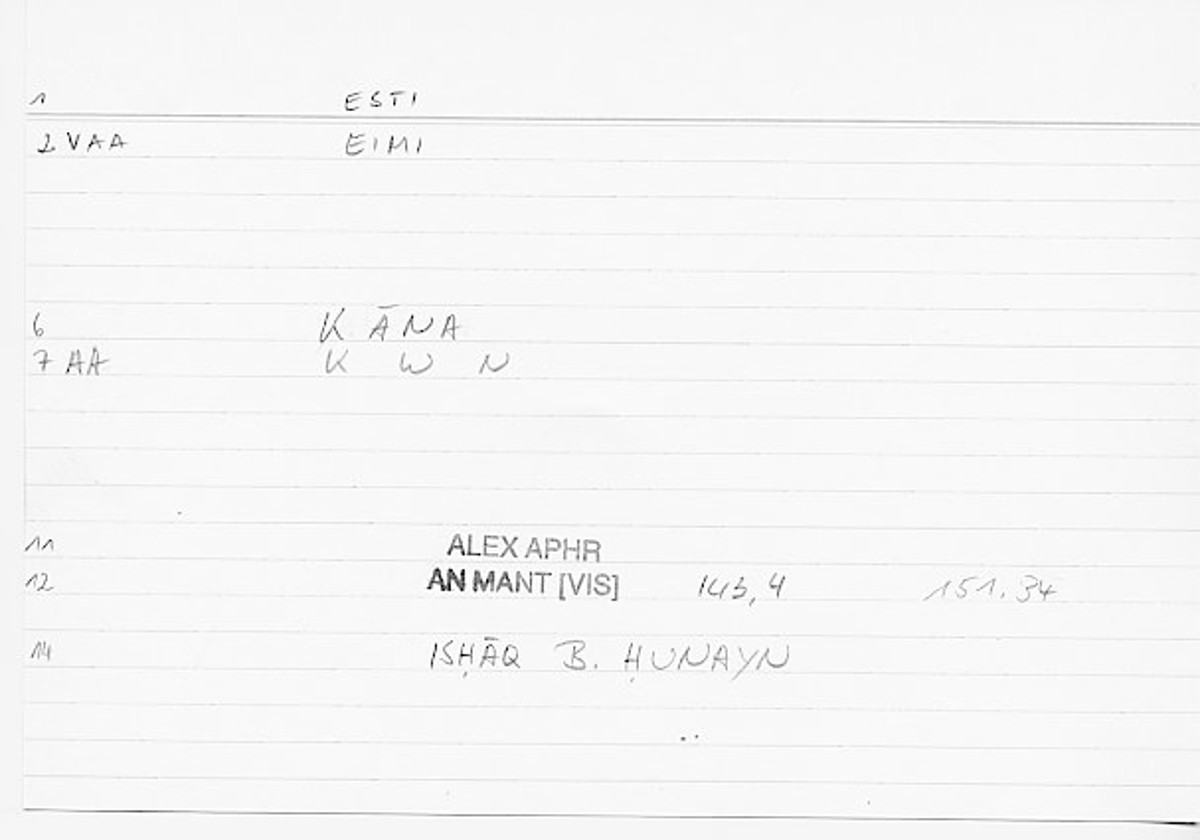 1 ESTI
2 VAA EIMI
6 KĀNA
7 AA K W N
11 ALEX APHR
12 AN MANT [VIS] 143, 4 151.34
14 ISḤĀQ B. ḤUNAYN